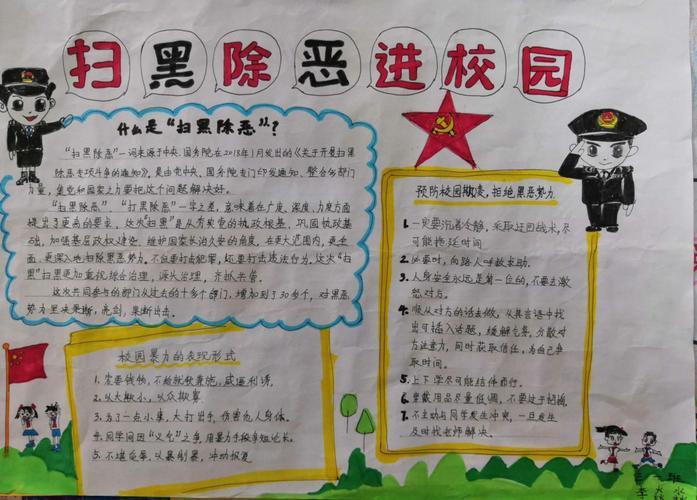 扫黑除恶进校园
什么是“扫黑除恶”?
“扫黑除恶”一词来源于中央、国务院在2018年1月发出的《关于开展扫黑
除恶专项斗争的通知》,是由党中央、国务院专门印发通知、整合多部门
力量,集党和国家之力要把这个问题解决好。
“扫黑除恶”、“打黑除恶”一字之差,意味着在广度、深度、力度方面
提出了更高的要求,这次“扫黑”是从夯实党的执政根基、巩固执政基
础,加强基层政权建设,维护国家长治久安的角度,在更大范围内,更全
面,更深入地扫除黑恶势力。不但要打击犯罪,还要打击违法行为,这次“扫
黑”扫黑更加重视综合治理,源头治理,齐抓共管。
这次共同参与的部门从过去的十多个部门,增加到了30多个,对黑恶
势力坚决果断,亮剑,果断出击。
校园暴力的表现形式
1、索要钱物,不给就
威逼利诱。
2、以大欺小,以众欺寡
3、为了一点小集,大打出手,伤害他人身体。
4、同学间因“义气”之争,用暴力手段争短论长。
5、不堪受辱,以暴制暴,冲动报复
预防校园欺凌,拒绝黑恶势力
1、一定要沉着冷静,采取迂回战术,尽
可能拖延时间
2、必要时,向路人呼救求助。
3、人身安全永远是第一位的,不要去激
怒对方。
4、顺从对方的话去做,从其言语中找
出可插入话题,缓解气氛,分散对
方注意力,同时获取信任,为自己争
取时间。
5、上下学尽可能结伴而行。
6、穿戴用品尽量低调,不要过于招摇。
7、不主动与同学发生冲突,一旦发生
及时找老师解决。